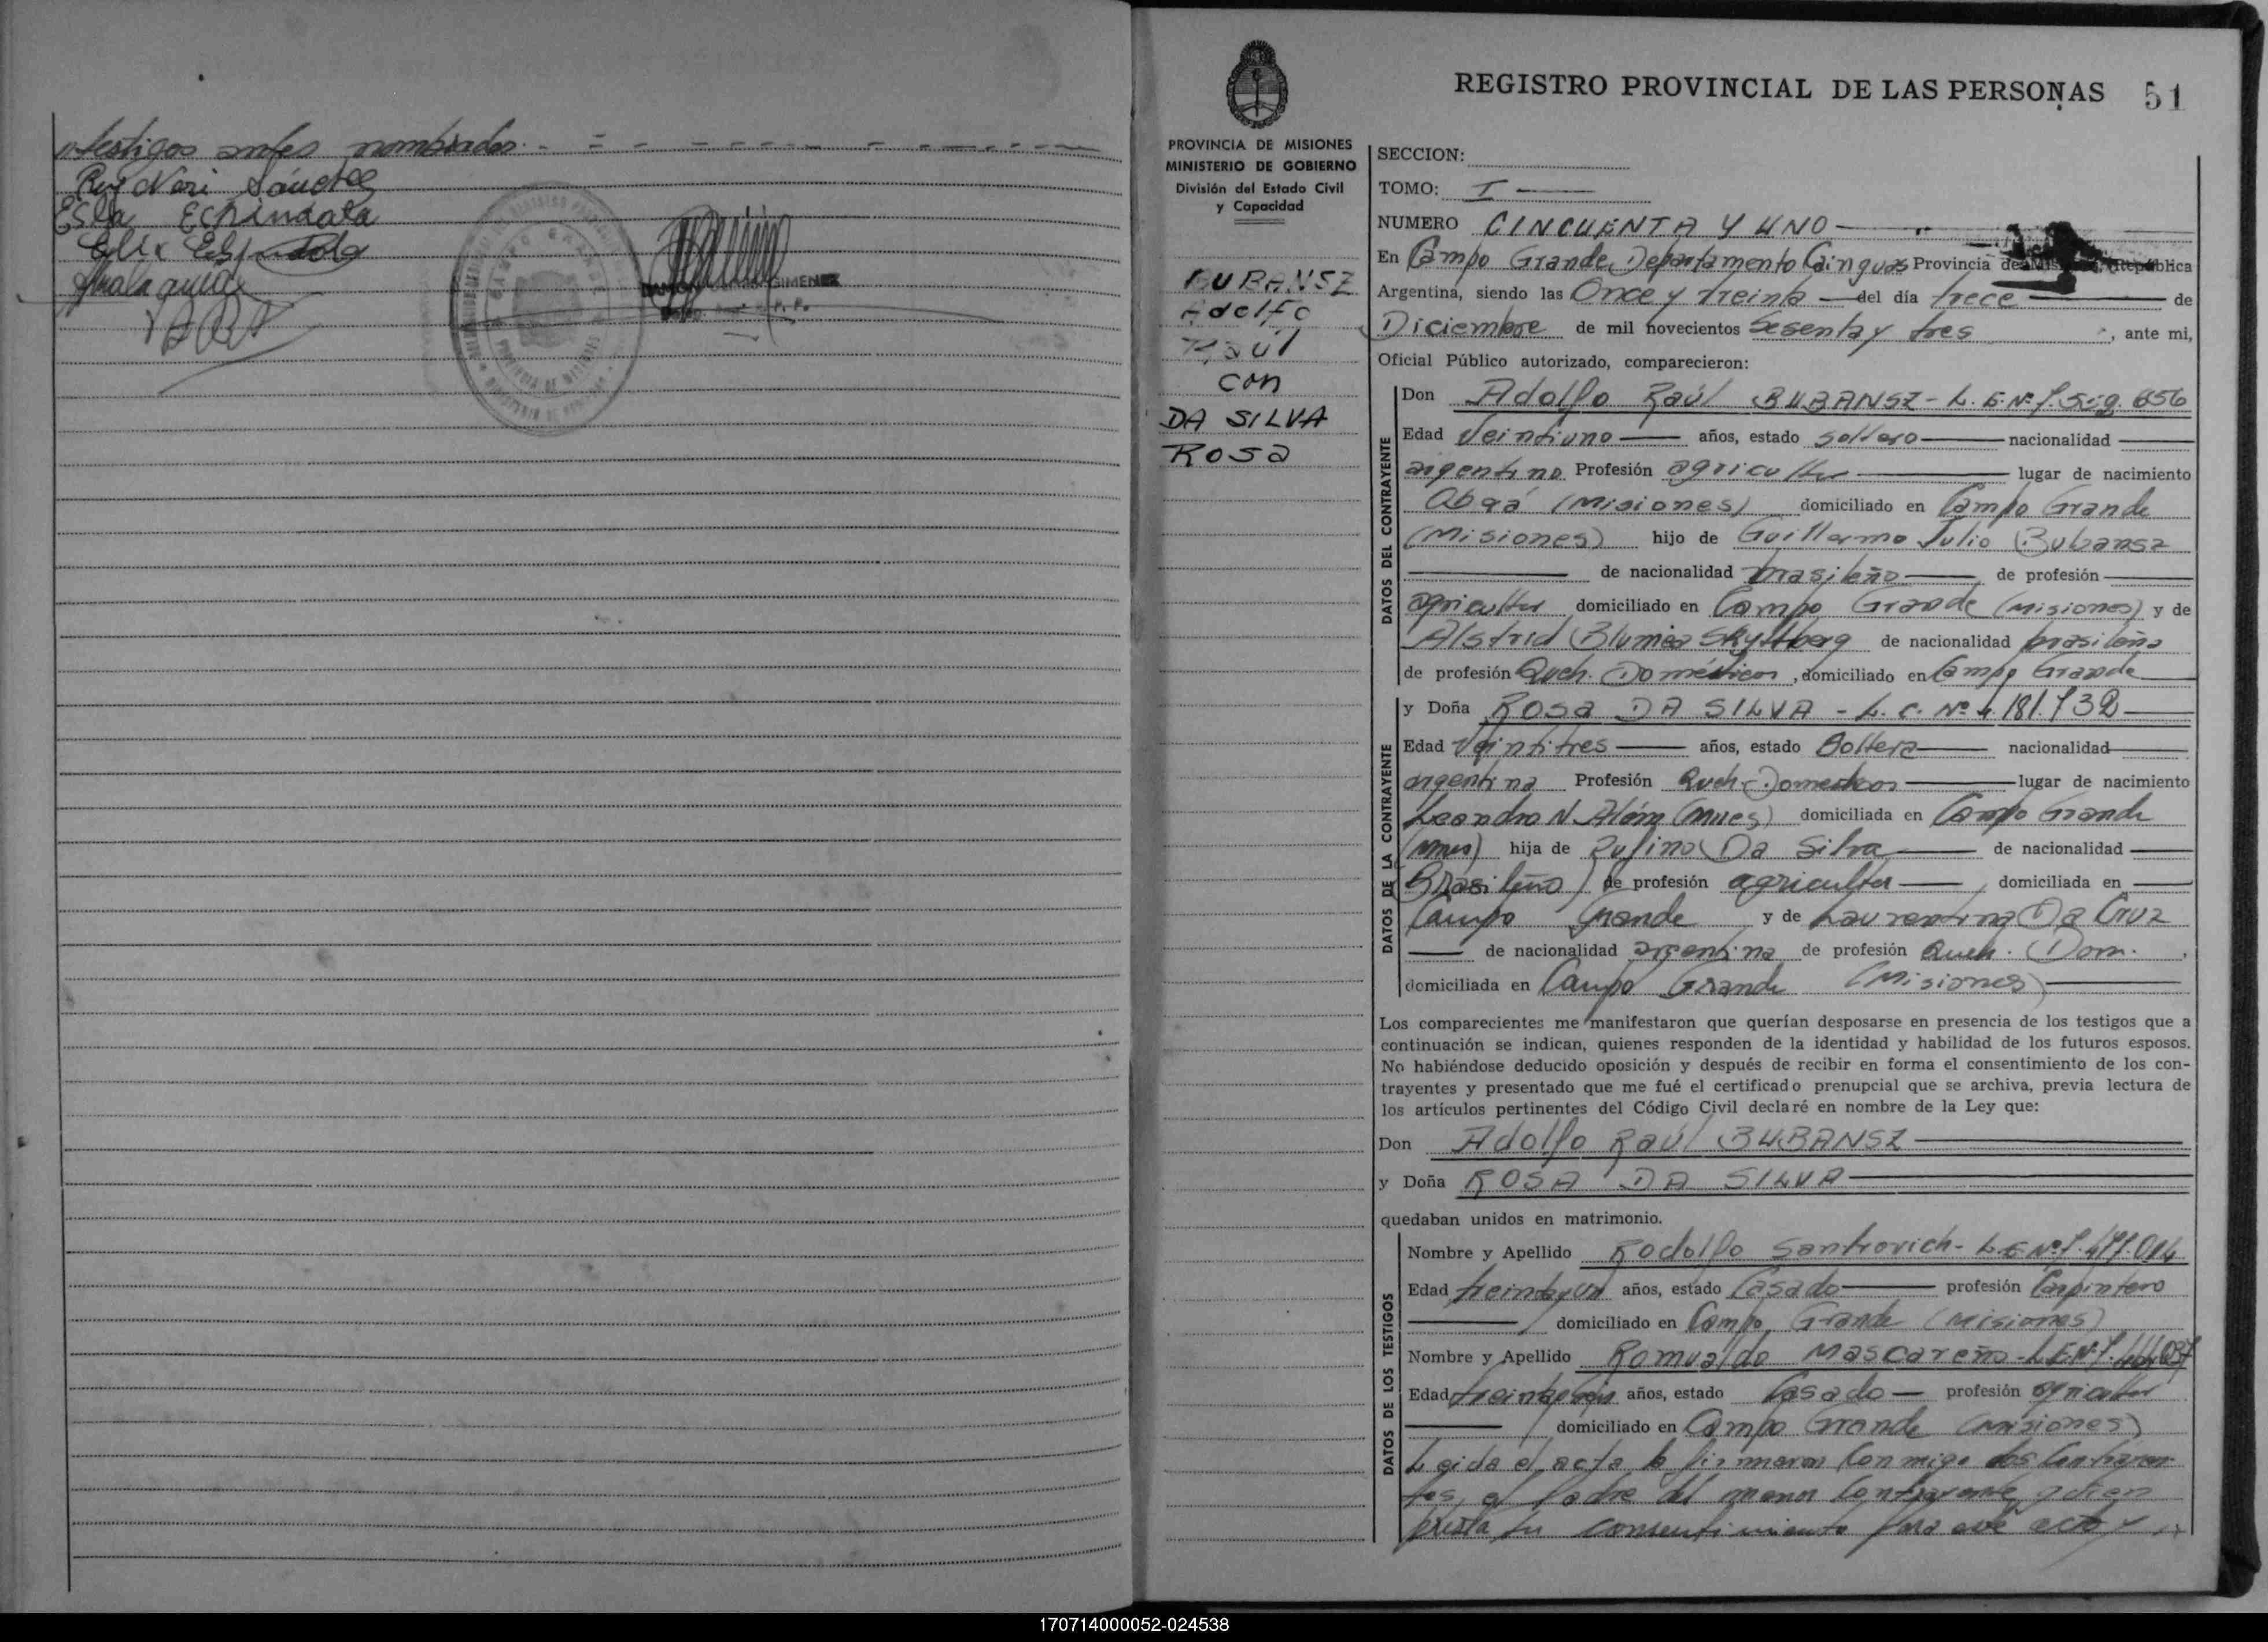 testigos antes nombrados.
Ruy Neri Sánchez
Esla Espindola
Elix Espindola
GIMENEZ
REGISTRO PROVINCIAL DE LAS PERSONAS 51
PROVINCIA DE MISIONES
MINISTERIO DE GOBIERNO
División del Estado Civil
y Capacidad
BUBANSZ
Adolfo
Raúl
con
DA SILVA
Rosa
SECCION:
TOMO: I
NUMERO CINCUENTA Y UNO
En Campo Grande, Departamento Cainguás Provincia de Misiones, República
Argentina, siendo las Once y treinta del día trece de
Diciembre de mil novecientos Sesenta y tres, ante mi,
Oficial Público autorizado, comparecieron:
DATOS DEL CONTRAYENTE
Don Adolfo Raúl BUBANSZ - L. E. Nº 7.509.656
Edad Veintiuno años, estado soltero nacionalidad
argentino Profesión agricultor lugar de nacimiento
Oberá (Misiones) domiciliado en Campo Grande
(Misiones) hijo de Guillermo Julio Bubansz
de nacionalidad brasileño de profesión
agricultor domiciliado en Campo Grande (Misiones) y de
Alstrid Blumea Skyttberg de nacionalidad brasileña
de profesión Queh. Domésticos, domiciliado en Campo Grande
DATOS DE LA CONTRAYENTE
y Doña ROSA DA SILVA - L. C. Nº 4.181.732
Edad Veintitres años, estado Soltera nacionalidad
argentina Profesión Queh. Domesticos lugar de nacimiento
Leandro N. Além (Mnes) domiciliada en Campo Grande
(Mnes) hija de Rufino Da Silva de nacionalidad
Brasileño de profesión agricultor domiciliada en
Campo Grande y de Laurentina Da Cruz
de nacionalidad argentina de profesión Queh. Dom.,
domiciliada en Campo Grande (Misiones)
Los comparecientes me manifestaron que querían desposarse en presencia de los testigos que a
continuación se indican, quienes responden de la identidad y habilidad de los futuros esposos.
No habiéndose deducido oposición y después de recibir en forma el consentimiento de los con-
trayentes y presentado que me fué el certificado prenupcial que se archiva, previa lectura de
los artículos pertinentes del Código Civil declaré en nombre de la Ley que:
Don Adolfo Raúl BUBANSZ
y Doña ROSA DA SILVA
quedaban unidos en matrimonio.
DATOS DE LOS TESTIGOS
Nombre y Apellido Rodolfo Santrovich - L.E. Nº 7.477.014
Edad treinta y un años, estado Casado profesión Carpintero
domiciliado en Campo Grande (Misiones)
Nombre y Apellido Romualdo Mascareño - L.E.Nº
Edad treinta y seis años, estado Casado profesión agricultor
domiciliado en Campo Grande (Misiones)
Leida el acta la firmaron Conmigo los Contrayen-
tes, el padre del menor Contrayente, quien
presta su consentimiento para este acto y
170714000052-024538